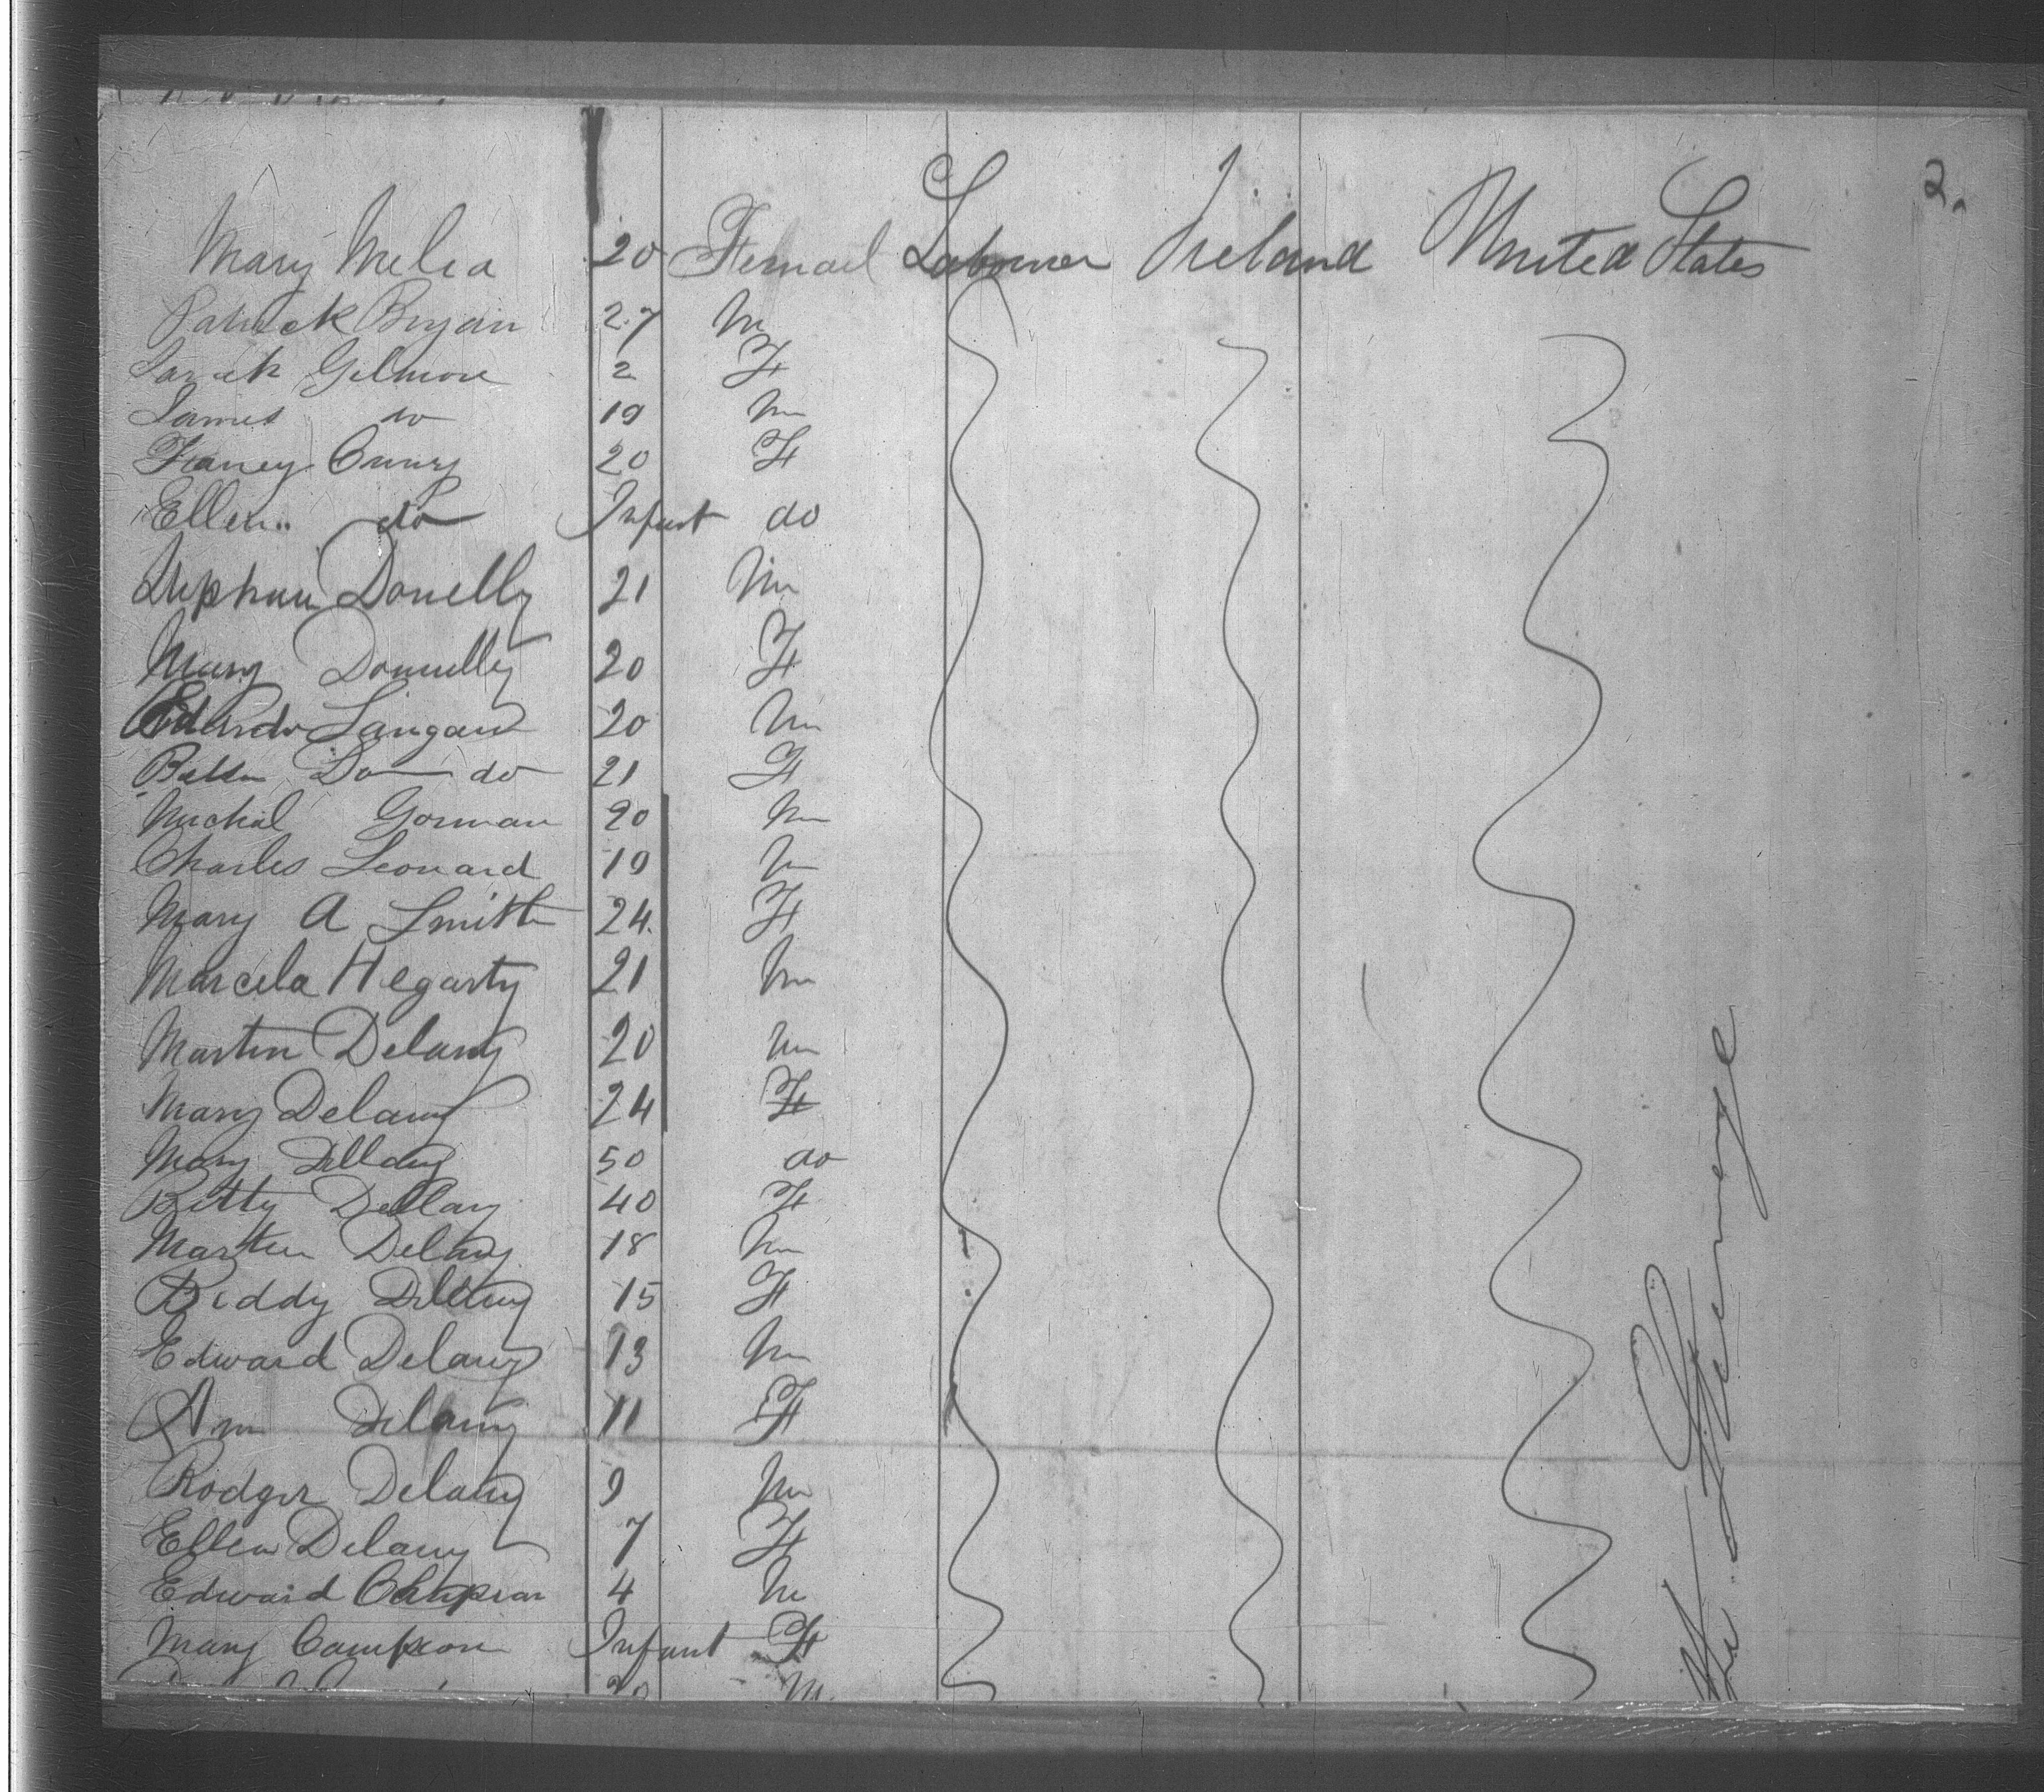 2.
Mary Melia 20 Femail Labourer Ireland United States
Patrick Bryan 27 M
Sarah Gilmore 2 F
James do 19 M
Franey 20 F
Ellen do Infant do
Stephen Donelly 21 M
Mary Donnelly 20 F
Langan 20 M
Do do 21 F
Michal Gorman 20 M
Charles Leonard 19 M
Mary A Smith 24 F
Marcela Hegarty 21 M
Martin Delany 20 M
Mary Delany 24 F
Mary Dellany 50 do
Bitty Dellany 40 F
Marten Delany 18 M
Biddy Dellany 15 F
Edward Delany 13 M
Ann Delany 11 F
Rodger Delany 9 M
Ellen Delany 7 F
Edward 4 M
Mary Campion Infant F
20 M
Steerage